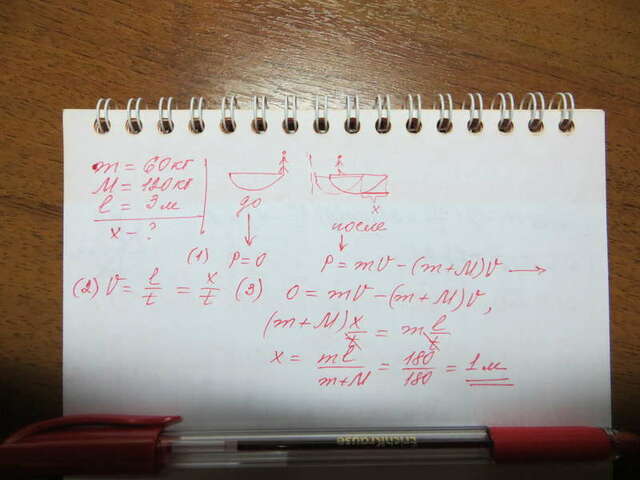 m = 60 кг
M = 120 кг
l = 3 м
x - ?
до
после
x
(1) P = 0
P = mV - (m+M)V →
(2) V = l/t = x/t (3)
0 = mV - (m+M)V,
(m+M) x/t = m l/t
x = ml/(m+M) = 180/180 = 1 м
ErichKrause